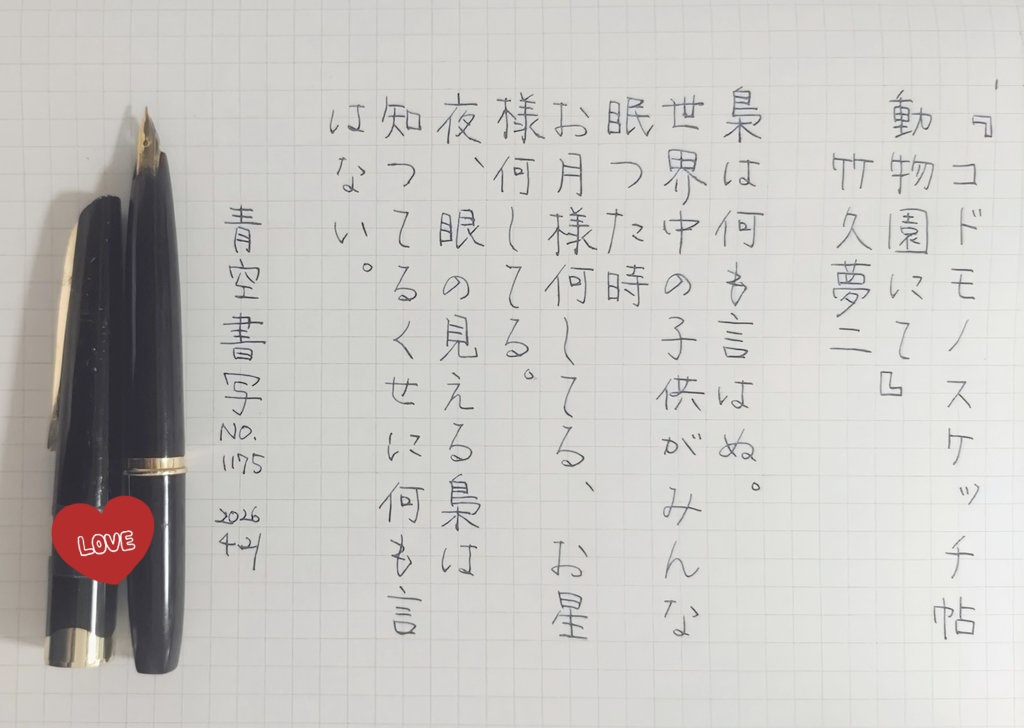 『コドモノスケッチ帖
動物園にて』
竹久夢二
梟は何も言はぬ。
世界中の子供がみんな
眠つた時
お月様何してる、お星
様何してる。
夜、眼の見える梟は
知つてるくせに何も言
はない。
青空書写
NO.
1175
2026
4.21
LOVE